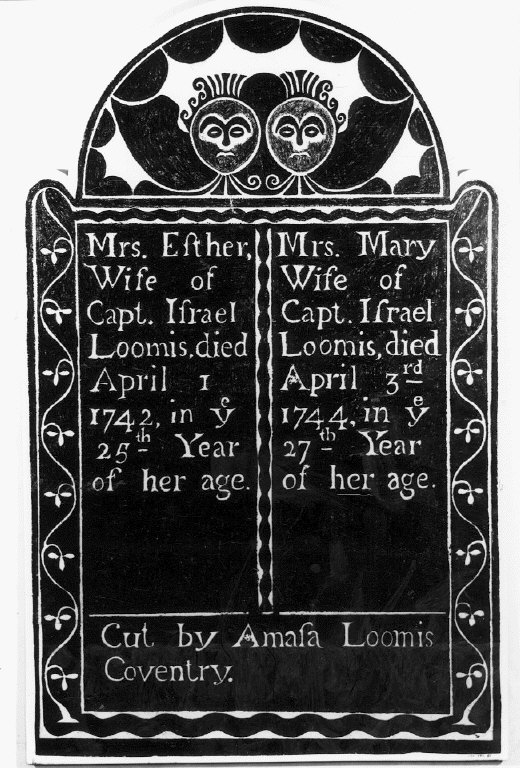 Mrs. Eſther,
Wife of
Capt. Iſrael
Loomis, died
April 1
1742, in yᵉ
25th Year
of her age.
Mrs. Mary
Wife of
Capt. Iſrael
Loomis, died
April 3rd
1744, in yᵉ
27th Year
of her age.
Cut by Amaſa Loomis
Coventry.